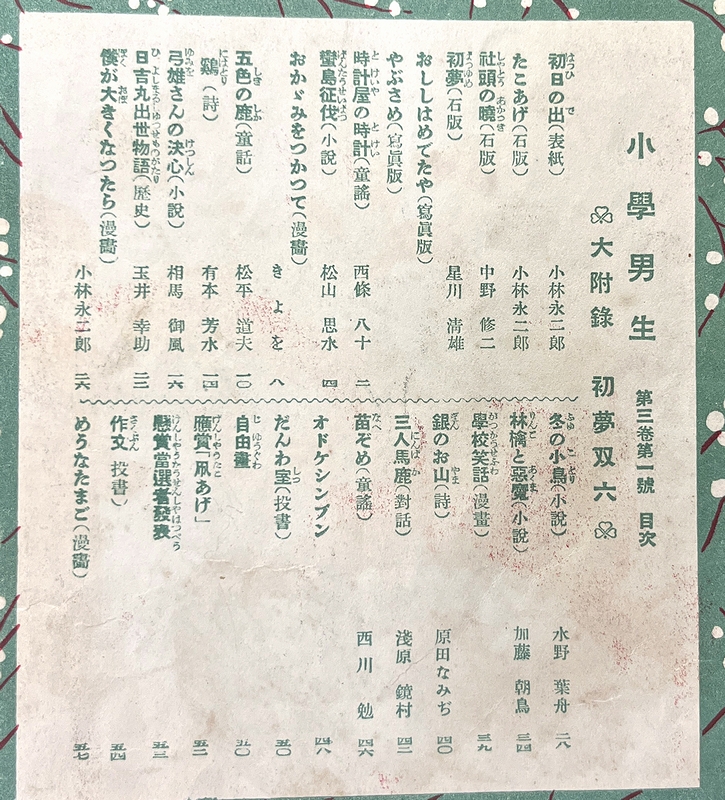 小學男生 第三卷第一號 目次
大附錄 初夢双六
初日の出(表紙) 小林永二郎
たこあげ(石版) 小林永二郎
社頭の曉(石版) 中野修二
初夢(石版) 星川清雄
おししはめでたや(寫眞版)
やぶさめ(寫眞版)
時計屋の時計(童謠) 西條八十 二
蠻島征伐(小說) 松山思水 四
おかゞみをつかつて(漫畵) きよを 八
五色の鹿(童話) 松平道夫 一〇
鷄(詩) 有本芳水 一四
弓雄さんの決心(小說) 相馬御風 一六
日吉丸出世物語(歷史) 玉井幸助 二三
僕が大きくなつたら(漫畵) 小林永二郎 二六
冬の小鳥(小說) 水野葉舟 二八
林檎と惡魔(小說) 加藤朝鳥 三四
學校笑話(漫畫) 三九
銀のお山(詩) 原田なみぢ 四〇
三人馬鹿(對話) 淺原鏡村 四二
苗ぞめ(童謠) 西川勉 四六
オドケシンブン 四八
だんわ室(投書) 五〇
自由畫 五〇
懸賞「凧あげ」 五二
懸賞當選者發表 五三
作文(投書) 五四
めうなたまご(漫畵) 五七